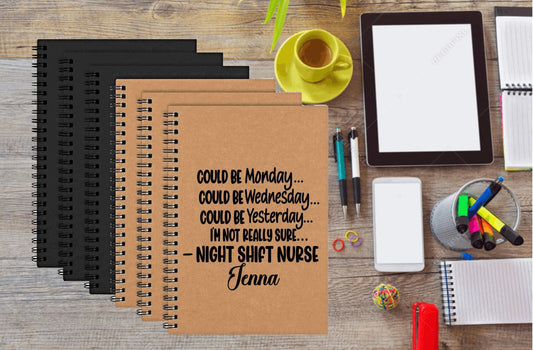 COULD BE Monday...
COULD BE Wednesday...
COULD BE Yesterday...
I'M NOT REALLY SURE...
- NIGHT SHIFT NURSE
Jenna